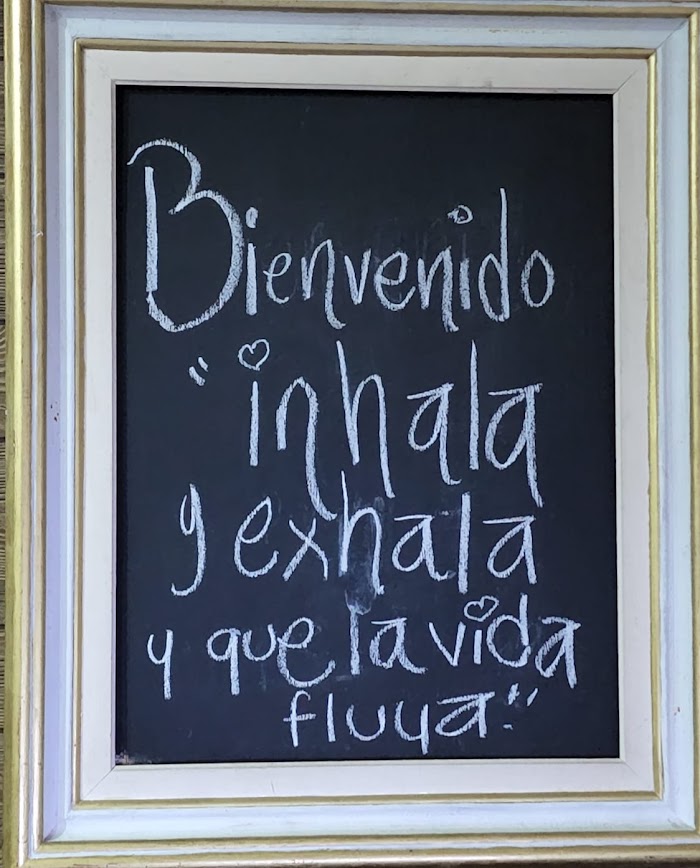 Bienvenido
"inhala
y exhala
y que la vida
fluya."